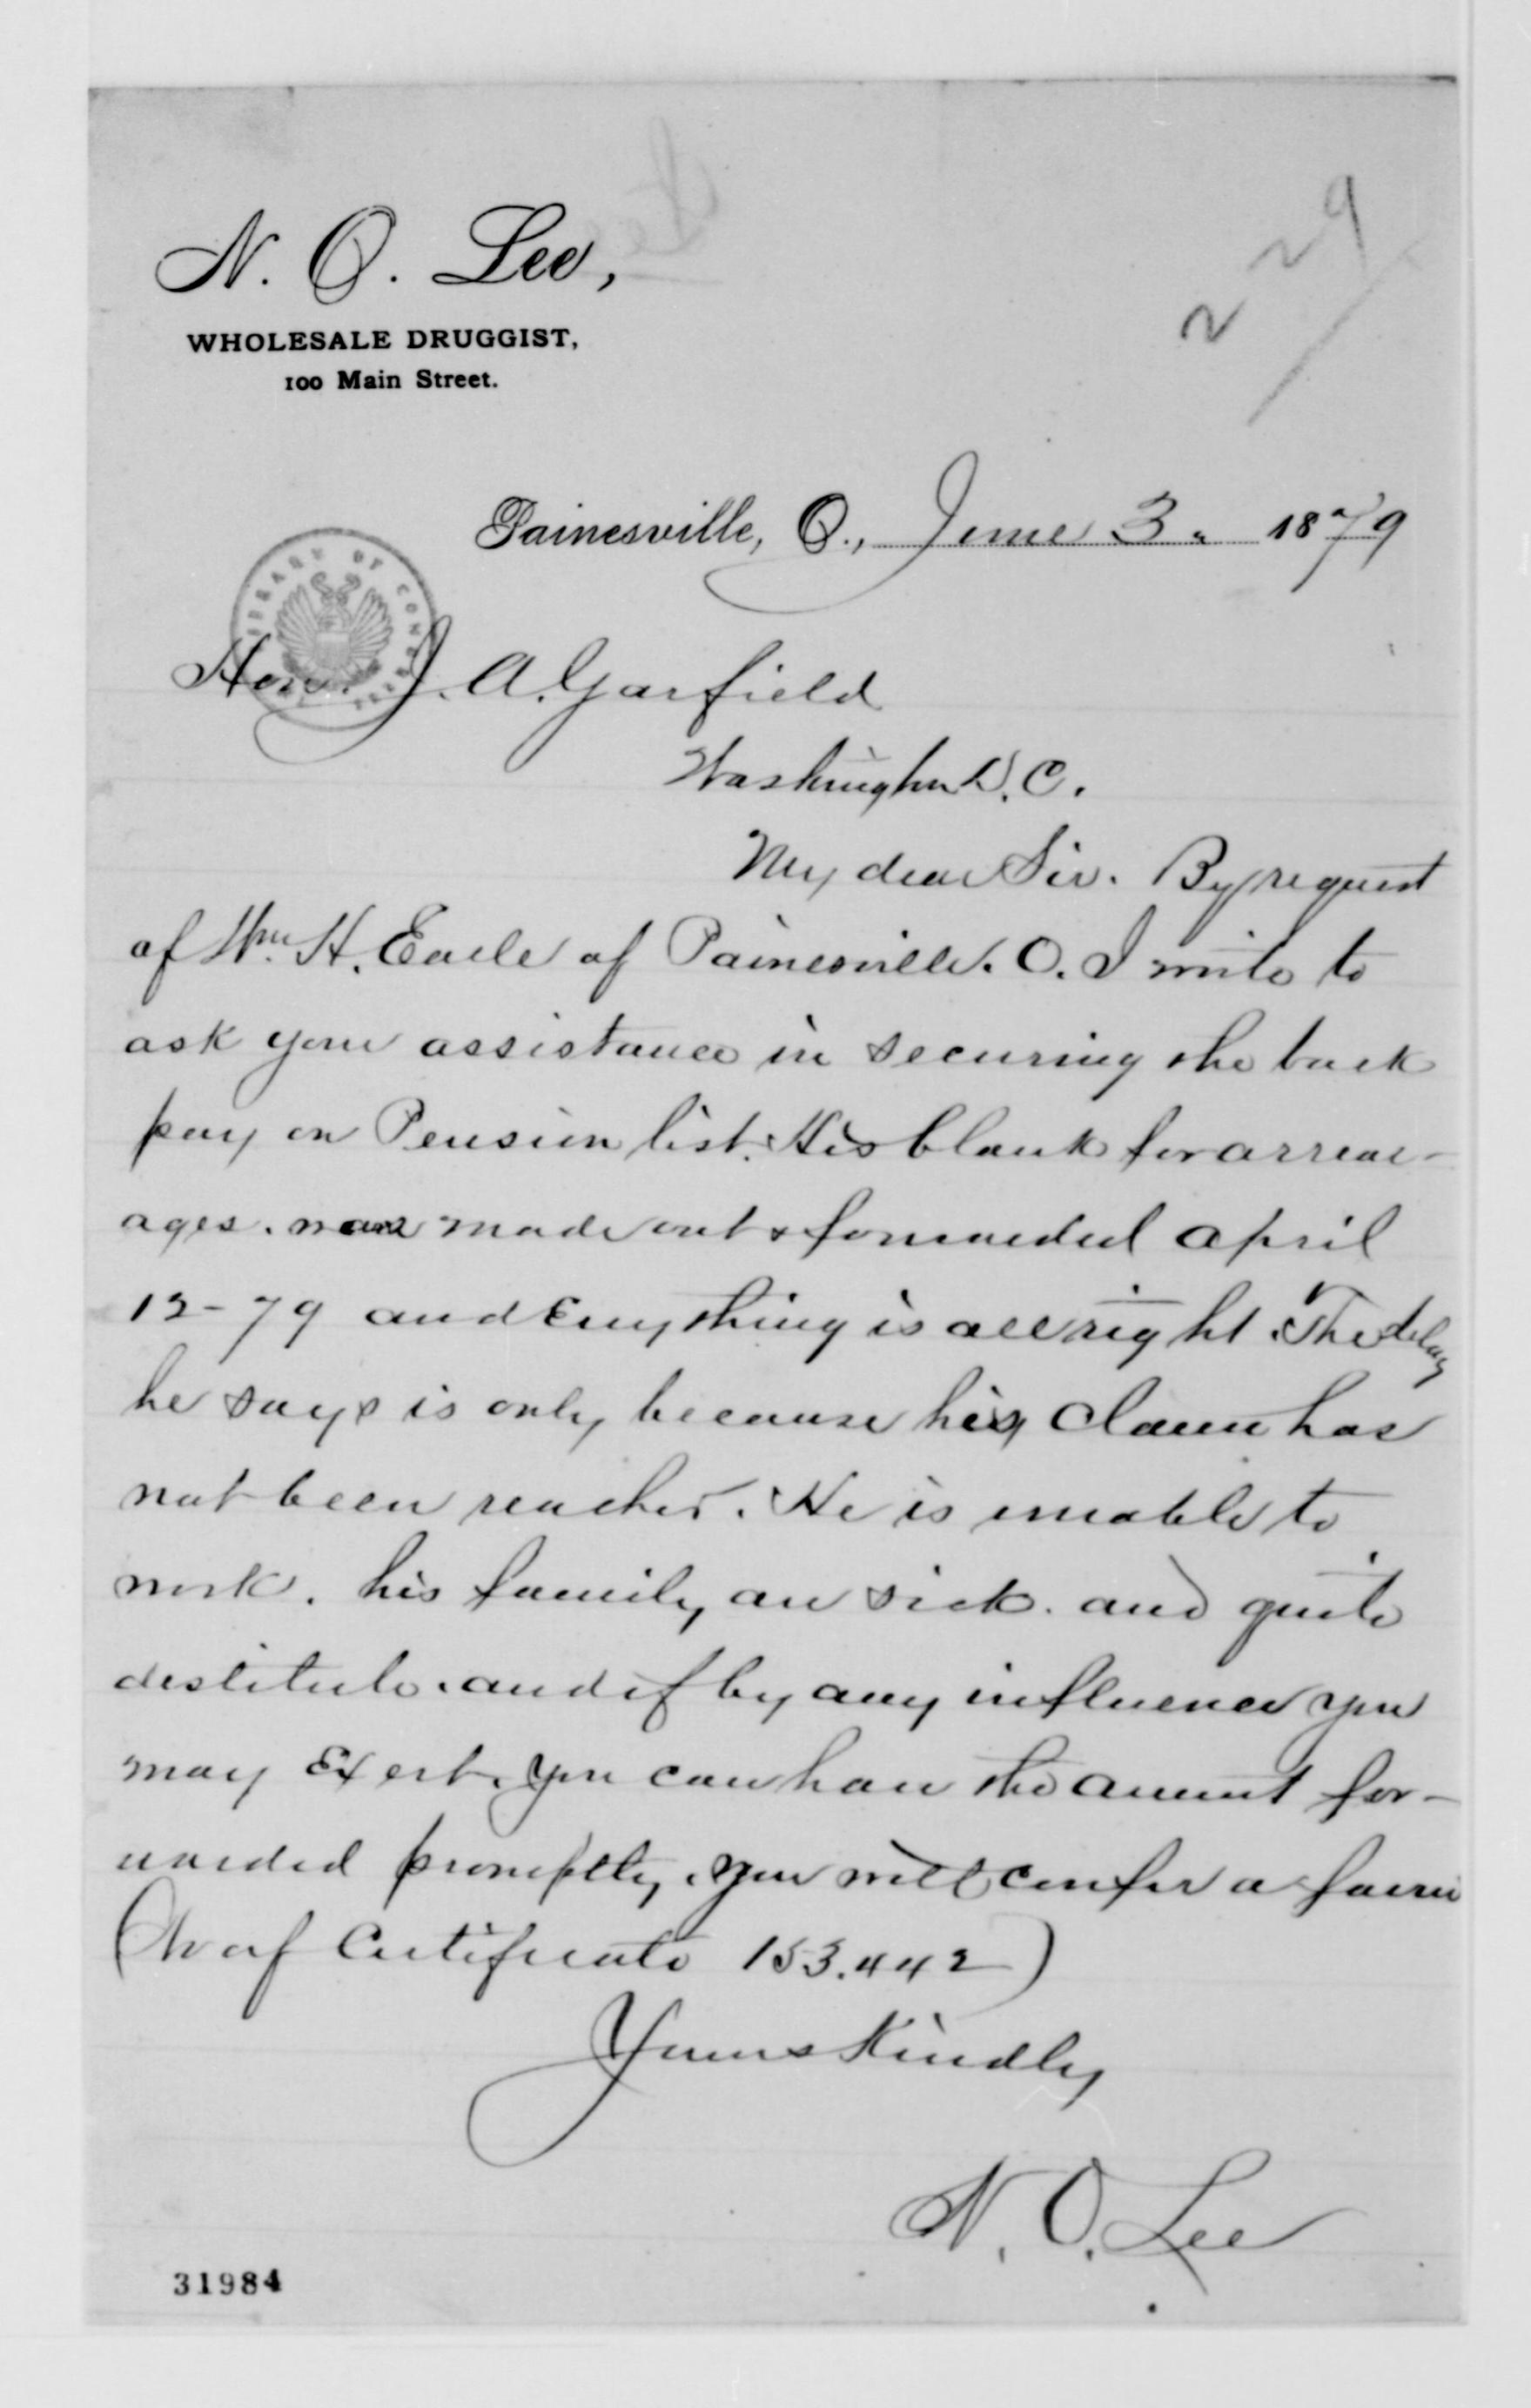 229
N. O. Lee,
WHOLESALE DRUGGIST,
100 Main Street.
Painesville, O., June 3. 1879
LIBRARY OF CONGRESS
Hon. J. A. Garfield
Washington D. C.
My dear Sir. By request
of Wm. H. Earle of Painesville. O. I write to
ask your assistance in securing the back
pay on Pension list. His blank for arrear-
ages. was made out & forwarded April
12-79 and Everything is all right. The delay
he says is only because his claim has
not been reached. He is unable to
work. his family are sick. and quite
destitute. and if by any influence you
may Exert, you can have the amount for-
warded promptly, you will confer a favor
(No of Certificate 153.442)
Yours Kindly
N. O. Lee
31984